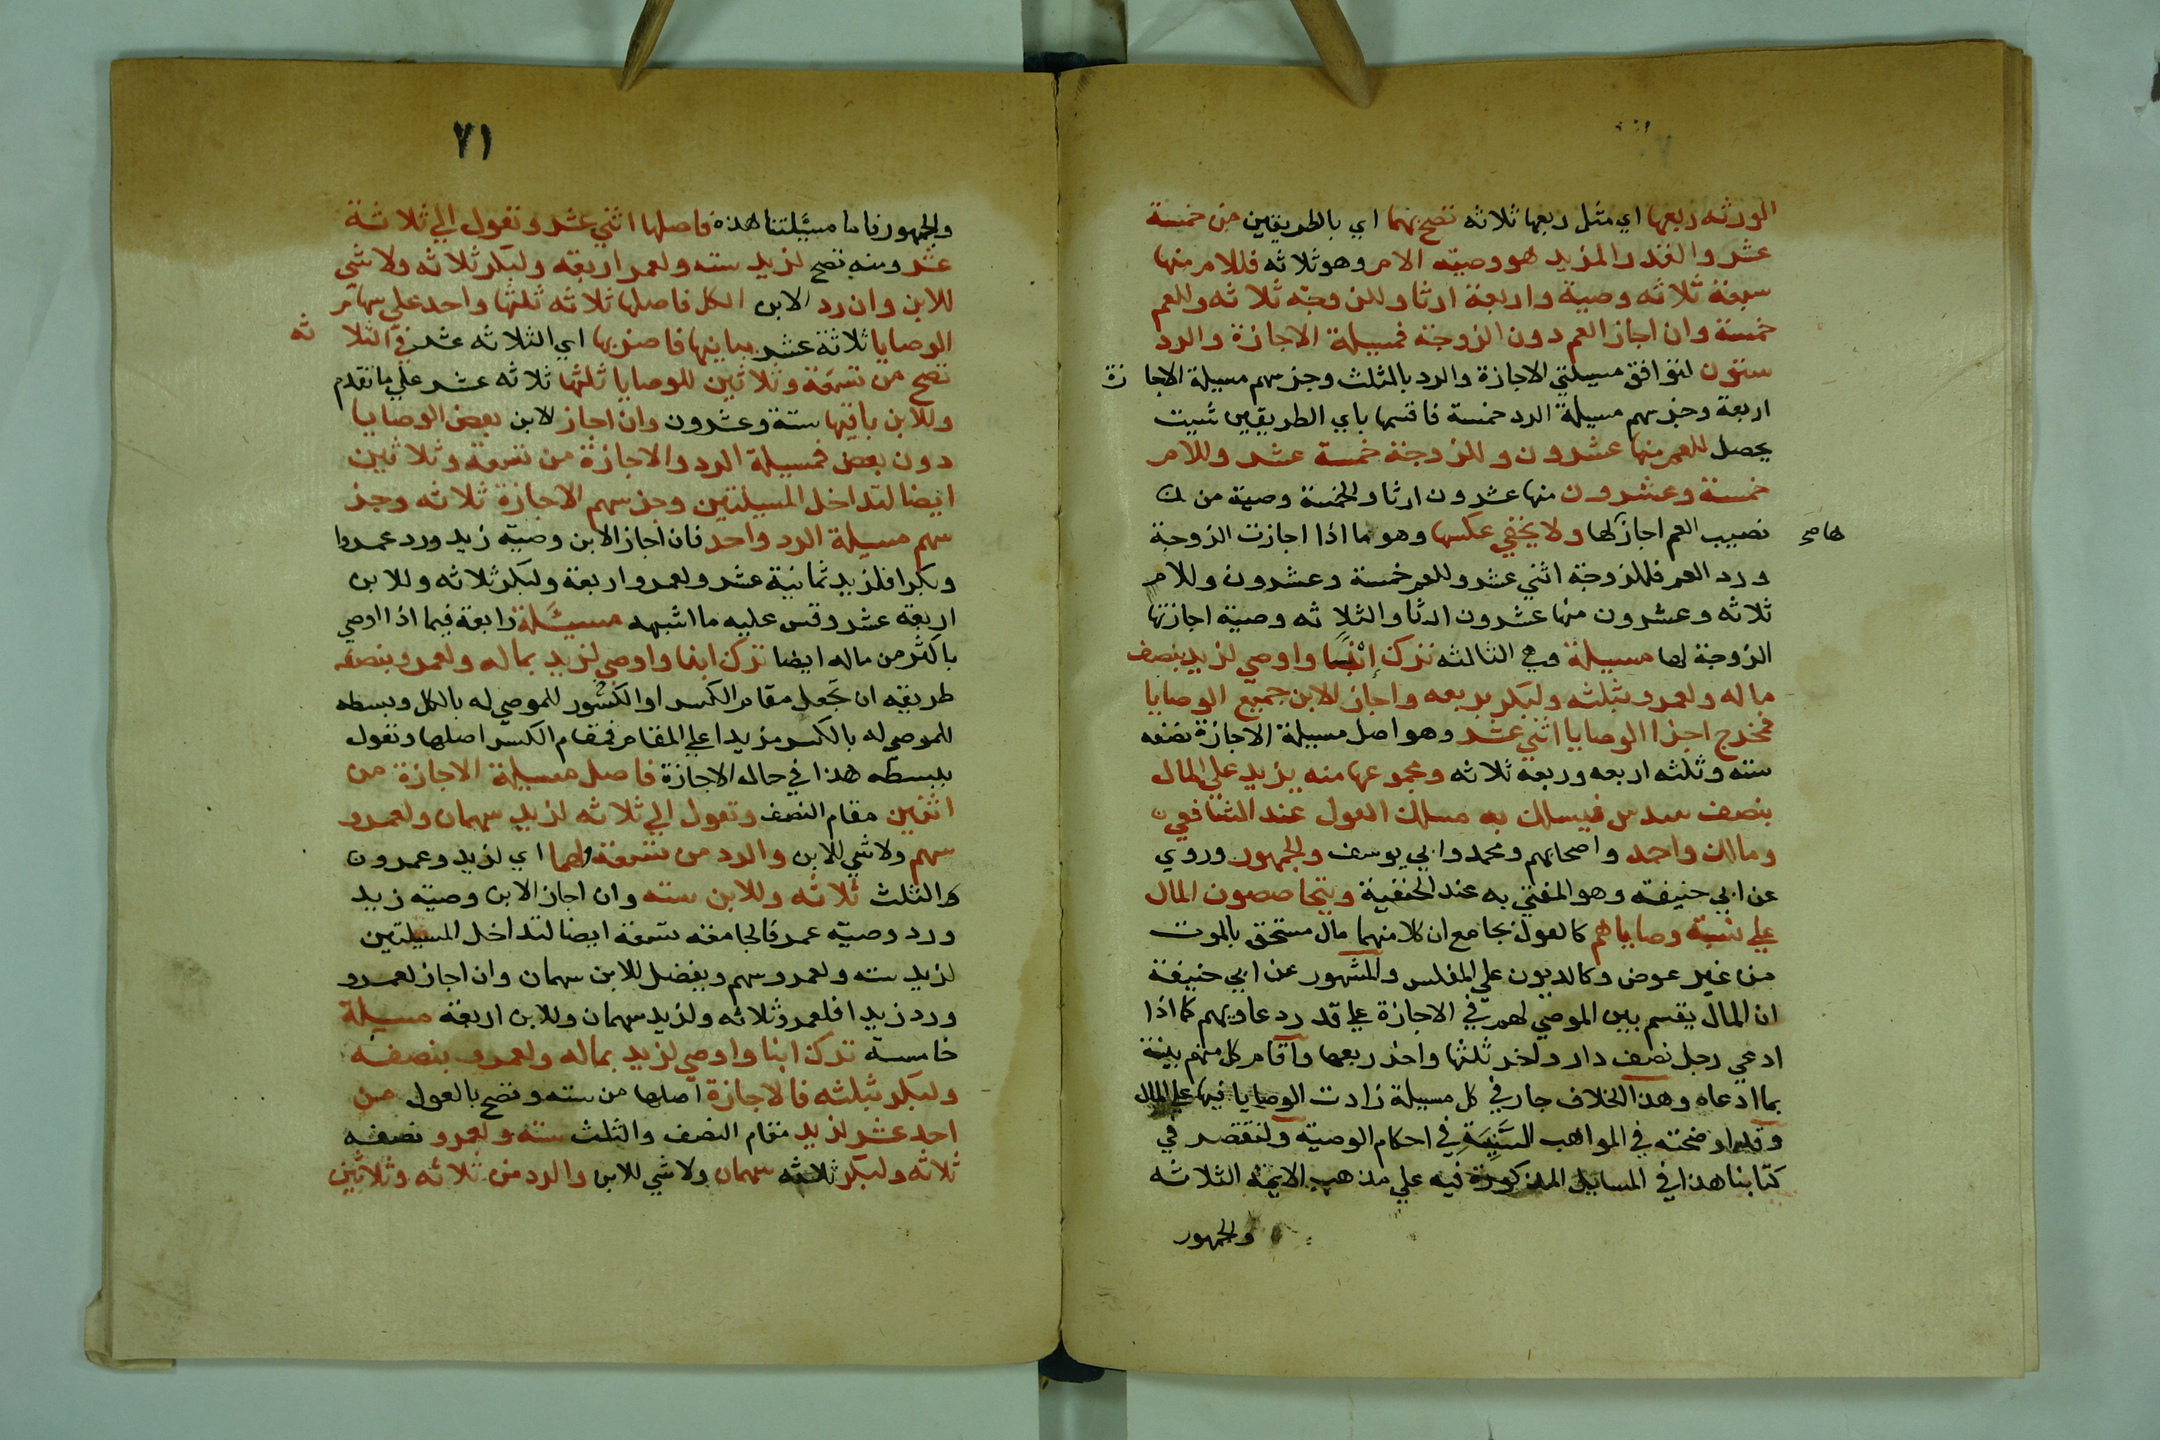 الورثه ربعها اي مثل ربعها ثلاثه تصح بهما اي بالطريقين من خمسة
عشر والقدر المزيد هو وصيته الام وهو ثلاثه فللام منها
سبعة ثلاثه وصية واربعة ارثا وللزوجه ثلاثه وللعم
خمسة وان اجاز العم دون الزوجة فمسيلة الاجازة والرد
ستون لتوافق مسيلتي الاجازة والرد بالمثلث وجز سهم مسيلة الاجازة
اربعة وجز سهم مسيلة الرد خمسة فاقسمها باي الطريقين شيت
يحصل للعم منها عشرون وللزوجة خمسة عشر وللام
خمسة وعشرون منها عشرون ارثا والخمسة وصية من
نصيب العم اجاز لها ولا يخفي عكسها وهو ما اذا اجازت الزوجة
هاصح
ورد العم فللزوجة اثني عشر وللعم خمسة وعشرون وللام
ثلاثه وعشرون منها عشرون ارثا والثلاثه وصية اجازتها
الزوجة لها مسيلة وهي الثالثه ترك إبنا واوصي لزيد بنصف
ماله ولعمرو بثلثه ولبكر بربعه واجاز الابن جميع الوصايا
فمخرج اجزا الوصايا اثني عشر وهو اصل مسيلة الاجازة نصفه
سته وثلثه اربعه وربعه ثلاثه ومجموعها منه يزيد علي المال
بنصف سدس فيسلك به مسلك العول عند الشافعي
ومالك واحمد واصحابهم ومحمد وابي يوسف والجمهور وروي
عن ابي حنيفه وهو المفتي به عند الحنفية ويتحاصصون المال
علي نسبة وصاياهم كالعول بجامع ان كلا منهما مال مستحق بالموت
من غير عوض وكالديون علي المفلس والمشهور عن ابي حنيفة
ان المال يقسم بين الموصي لهم في الاجازة علي قدر دعاويهم كما اذا
ادعي رجل نصف دار واخر ثلثها واخر ربعها واقام كل منهم بينة
بما ادعاه وهذا الخلاف جار في كل مسيلة زادت الوصايا فيها علي المال
وقد اوضحته في المواهب السَنِيَةِ في احكام الوصية ولنقتصر في
كتابنا هذا في المسايل المذكورة فيه علي مذهب الايمة الثلاثه
والجمهور
٧١
والجمهور فاما مسئلتنا هذه فاصلها اثني عشر وتعول الي ثلاثة
عشر ومنه تصح لزيد سته ولعمر اربعه ولبكر ثلاثه ولا شي
للابن وان رد الابن الكل فاصلها ثلاثه ثلثها واحد علي سهام
الوصايا ثلاثة عشر يباينها فاضربها اي الثلاثه عشر في الثلاثه
تصح من تسعة وثلاثين للوصايا ثلثها ثلاثه عشر علي ما تقدم
وللابن باقيها ستة وعشرون وان اجاز الابن بعض الوصايا
دون بعض فمسيلة الرد والاجازة من تسعة وثلاثين
ايضا لتداخل المسيلتين وجز سهم الاجازة ثلاثه وجز
سهم مسيلة الرد واحد فان اجاز الابن وصية زيد ورد عمروا
وبكرا فلزيد ثمانية عشر ولعمرو اربعة ولبكر ثلاثه وللابن
اربعة عشر وقس عليه ما اشبهه مسيئلة رابعة فيما اذا اوصي
باكثر من ماله ايضا ترك ابنا واوصي لزيد بماله ولعمرو بنصفه
طريقه ان تجعل مقام الكسر او الكسور للموصي له بالكل وبسطه
للموصي له بالكسر مزيدا علي المقام فمقام الكسر اصلها وتعول
ببسطه هذا في حاله الاجازة فاصل مسيلة الاجازة من
اثنين مقام النصف وتعول الي ثلاثه لزيد سهمان ولعمرو
سهم ولا شي للابن والرد من تسعة لهما اي لزيد وعمرو ن
الثلث ثلاثه وللابن سته وان اجاز الابن وصية زيد
ورد وصية عمرو فالجامعه تسعة ايضا لتداخل المسيلتين
لزيد سته ولعمرو سهم ويفضل للابن سهمان وان اجاز لعمرو
ورد زيدا فلعمرو ثلاثه ولزيد سهمان وللابن اربعة مسيلة
خامسة ترك ابنا واوصي لزيد بماله ولعمرو بنصفه
ولبكر بثلثه فالاجازة اصلها من سته وتصح بالعول من
احد عشر لزيد مقام النصف والثلث سته ولعمرو نصفه
ثلاثه ولبكر ثلثه سهمان ولا شي للابن والرد من ثلاثه وثلاثين